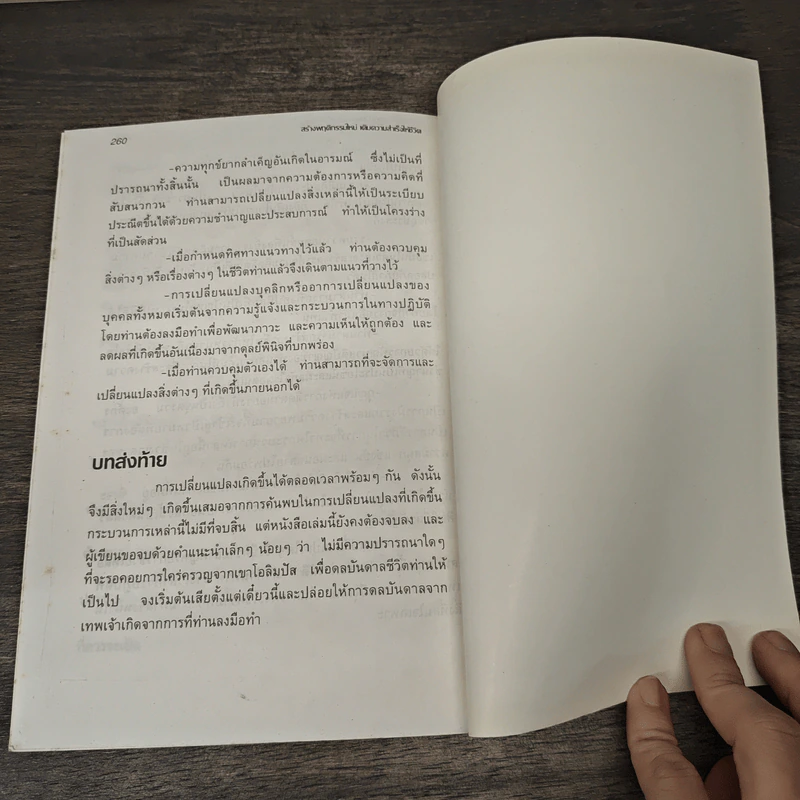 260
สร้างพฤติกรรมใหม่ เติมความสำเร็จให้ชีวิต
-ความทุกข์ยากลำเค็ญอันเกิดในอารมณ์ ซึ่งไม่เป็นที่
ปรารถนาทั้งสิ้นนั้น เป็นผลมาจากความต้องการหรือความคิดที่
สับสนวกวน ท่านสามารถเปลี่ยนแปลงสิ่งเหล่านี้ให้เป็นระเบียบ
ประณีตขึ้นได้ด้วยความชำนาญและประสบการณ์ ทำให้เป็นโครงร่าง
ที่เป็นสัดส่วน
-เมื่อกำหนดทิศทางแนวทางไว้แล้ว ท่านต้องควบคุม
สิ่งต่างๆ หรือเรื่องต่างๆ ในชีวิตท่านแล้วจึงเดินตามแนวที่วางไว้
-การเปลี่ยนแปลงบุคลิกหรืออาการเปลี่ยนแปลงของ
บุคคลทั้งหมดเริ่มต้นจากความรู้แจ้งและกระบวนการในทางปฏิบัติ
โดยท่านต้องลงมือทำเพื่อพัฒนาภาวะ และความเห็นให้ถูกต้อง และ
ลดผลที่เกิดขึ้นอันเนื่องมาจากดุลย์พินิจที่บกพร่อง
-เมื่อท่านควบคุมตัวเองได้ ท่านสามารถที่จะจัดการและ
เปลี่ยนแปลงสิ่งต่างๆ ที่เกิดขึ้นภายนอกได้
บทส่งท้าย
การเปลี่ยนแปลงเกิดขึ้นได้ตลอดเวลาพร้อมๆ กัน ดังนั้น
จึงมีสิ่งใหม่ๆ เกิดขึ้นเสมอจากการค้นพบในการเปลี่ยนแปลงที่เกิดขึ้น
กระบวนการเหล่านี้ไม่มีที่จบสิ้น แต่หนังสือเล่มนี้ยังคงต้องจบลง และ
ผู้เขียนขอจบด้วยคำแนะนำเล็กๆ น้อยๆ ว่า ไม่มีความปรารถนาใดๆ
ที่จะรอคอยการใคร่ครวญจากเขาโอลิมปัส เพื่อดลบันดาลชีวิตท่านให้
เป็นไป จงเริ่มต้นเสียตั้งแต่เดี๋ยวนี้และปล่อยให้การดลบันดาลจาก
เทพเจ้าเกิดจากการที่ท่านลงมือทำ